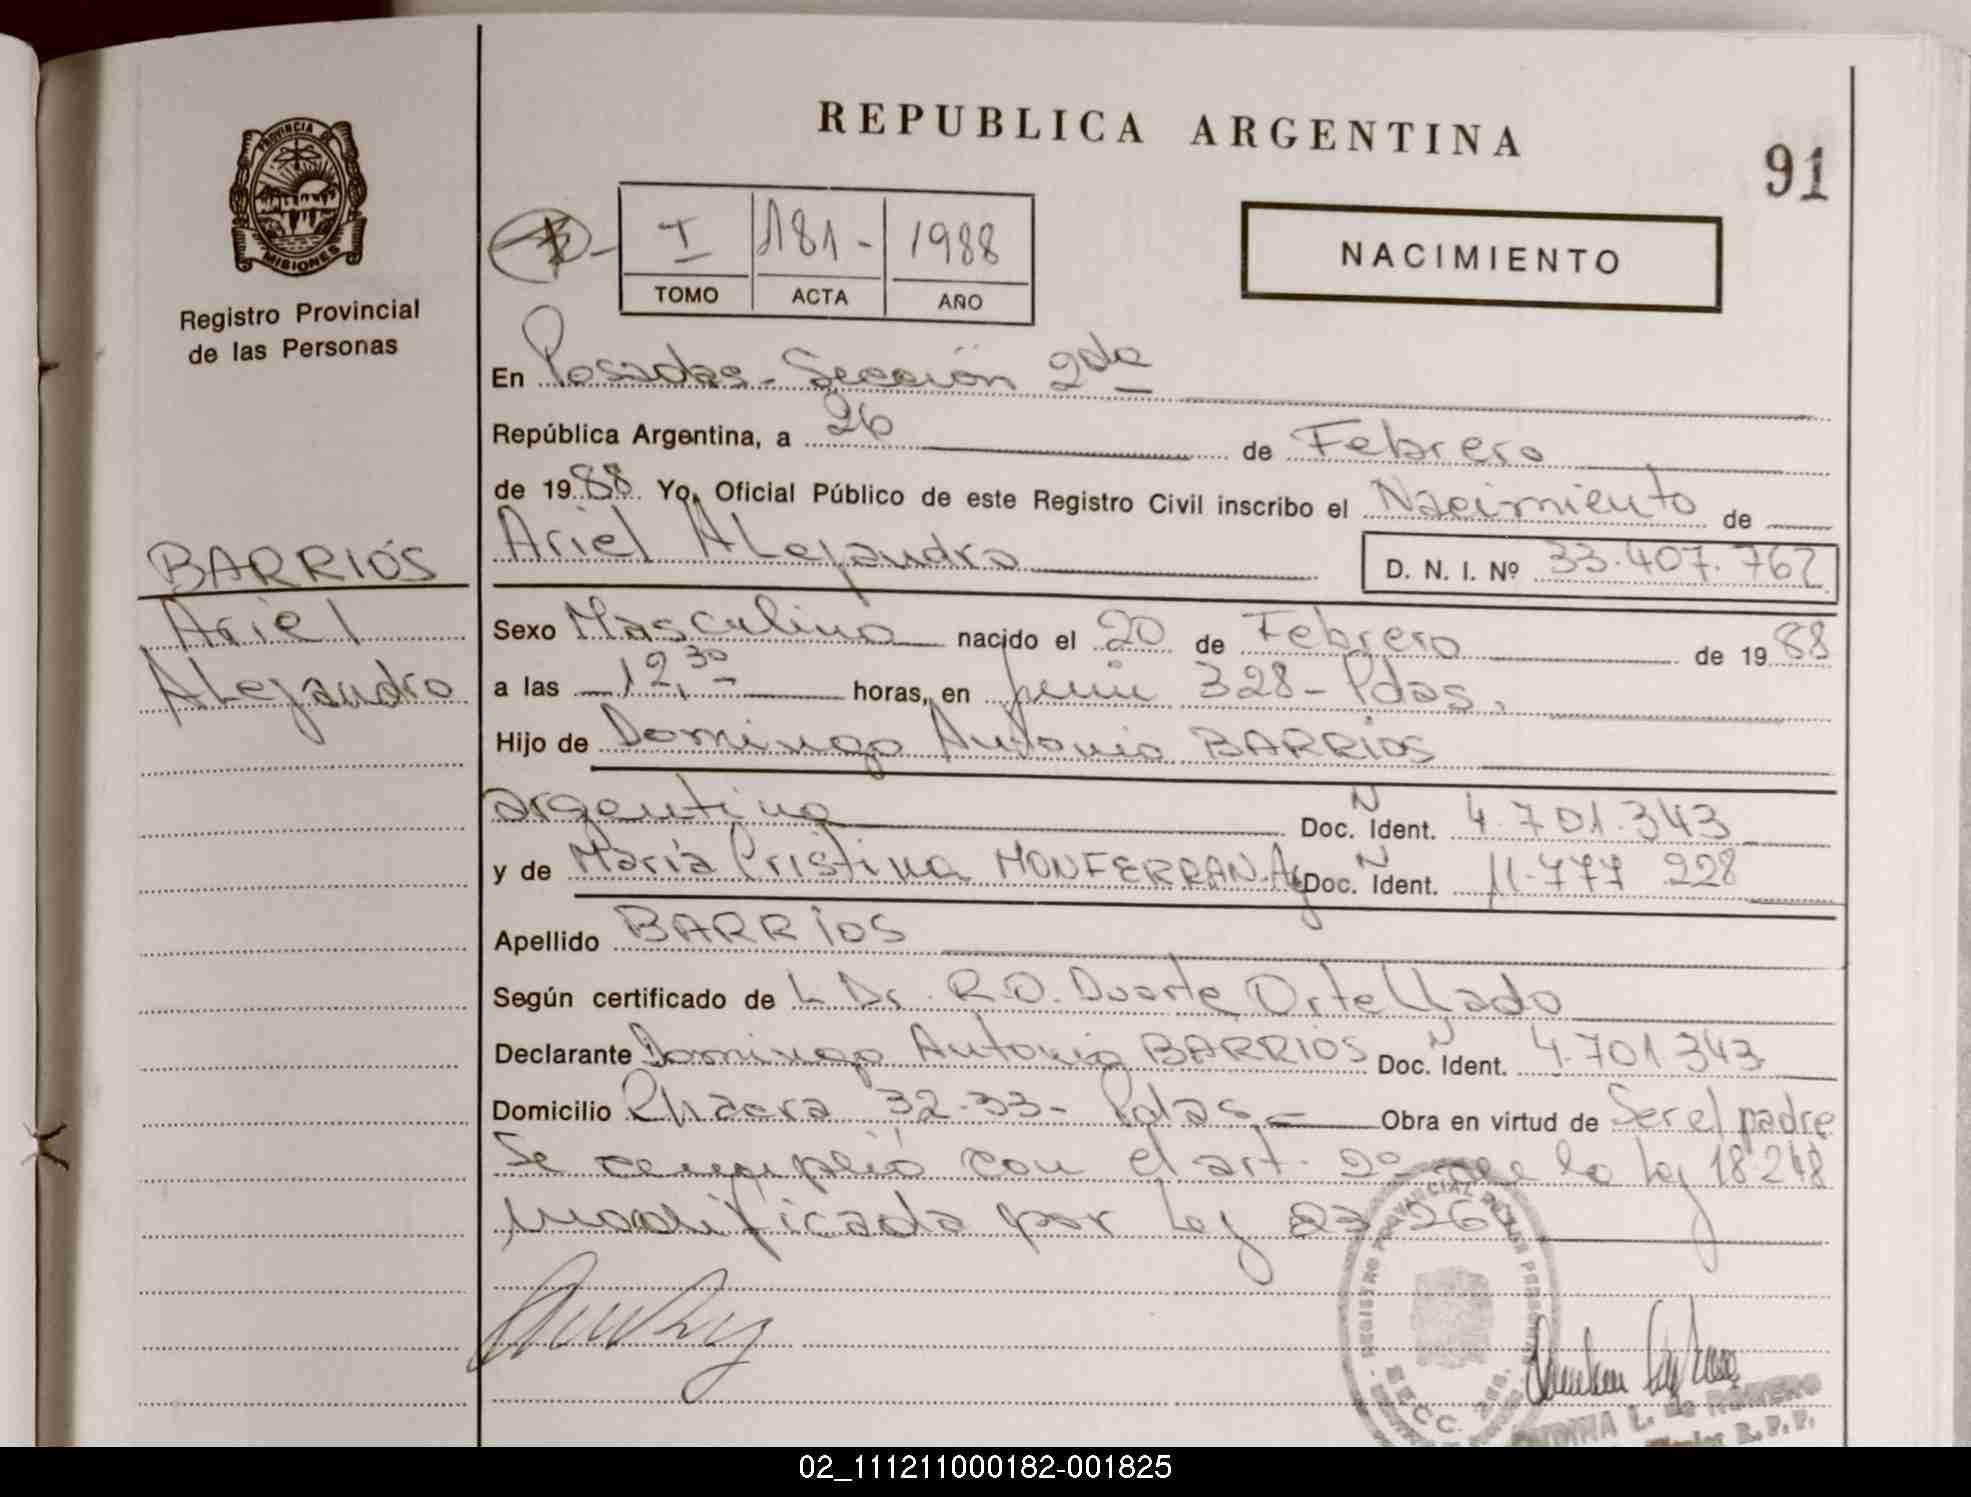 REPUBLICA ARGENTINA
91
PROVINCIA DE
MISIONES
Registro Provincial
de las Personas
I 181- 1988
TOMO ACTA AÑO
NACIMIENTO
En Posadas - Sección 2da
República Argentina, a 26 de Febrero
de 1988 Yo, Oficial Público de este Registro Civil inscribo el Nacimiento de
Ariel Alejandro D. N. I. Nº 33.407.762
BARRIOS
Ariel
Alejandro
Sexo Masculino nacido el 20 de Febrero de 1988
a las 12,30 horas, en Junin 328 - Pdas.
Hijo de Domingo Antonio BARRIOS
argentino Doc. Ident. N 4.701.343
y de María Cristina MONFERRAN. Arg Doc. Ident. N 11.777 228
Apellido BARRIOS
Según certificado de L Dr. R.O. Duarte Ortellado
Declarante Domingo Antonio BARRIOS Doc. Ident. N 4.701.343
Domicilio Chacra 32-33- Pdas. Obra en virtud de Ser el padre
Se cumplió con el art. 2º de la Ley 18.248
modificada por Ley 23.26
REGISTRO PROVINCIAL DE LAS PERSONAS
SECC. 2da.
L. de ROMERO
R.P.P.
02_111211000182-001825